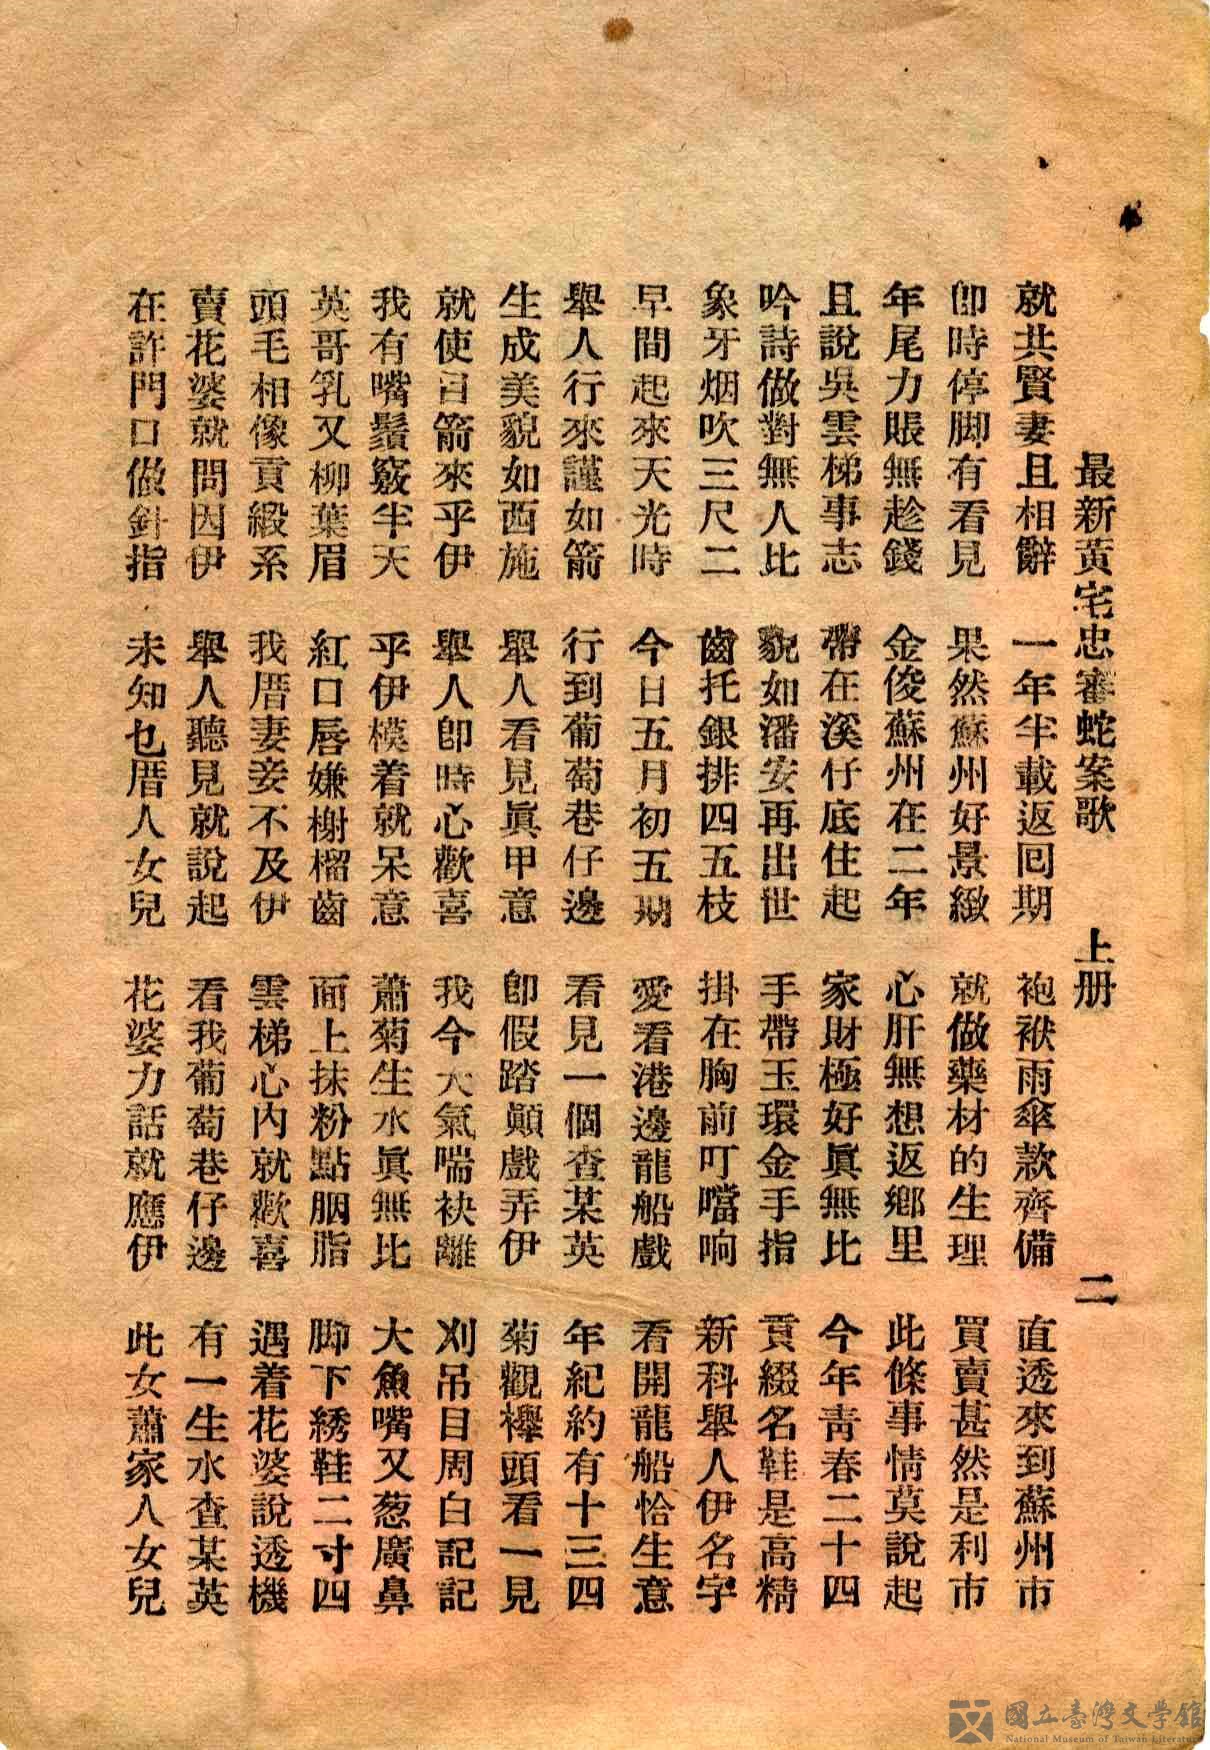 最新黃宅忠審蛇案歌 上册 二
就共賢妻且相辭 一年半載返囘期 袍袱雨傘款齊備 直透來到蘇州市
卽時停脚有看見 果然蘇州好景緻 就做藥材的生理 買賣甚然是利市
年尾力賬無趁錢 金俊蘇州在二年 心肝無想返鄉里 此條事情莫說起
且說吳雲梯事志 帶在溪仔底住起 家財極好眞無比 今年靑春二十四
吟詩做對無人比 貌如潘安再出世 手帶玉環金手指 貢綴名鞋是高精
象牙烟吹三尺二 齒托銀排四五枝 掛在胸前叮噹响 新科舉人伊名字
早間起來天光時 今日五月初五期 愛看港邊龍船戲 看開龍船恰生意
舉人行來謹如箭 行到葡萄巷仔邊 看見一個查某英 年紀約有十三四
生成美貌如西施 舉人看見眞甲意 卽假踏顚戲弄伊 菊觀襷頭看一見
就使目箭來乎伊 舉人卽時心歡喜 我今大氣喘袂離 刈吊目周白記記
我有嘴鬚竅半天 乎伊模着就呆意 蕭菊生水眞無比 大魚嘴又葱廣鼻
英哥乳又柳葉眉 紅口唇嫌榭榴齒 面上抹粉點胭脂 脚下綉鞋二寸四
頭毛相像貢緞系 我厝妻妾不及伊 雲梯心內就歡喜 遇着花婆說透機
賣花婆就問因伊 舉人聽見就說起 看我葡萄巷仔邊 有一生水查某英
在許門口做針指 未知乜厝人女兒 花婆力話就應伊 此女蕭家人女兒
國立臺灣文學館
National Museum of Taiwan Literature